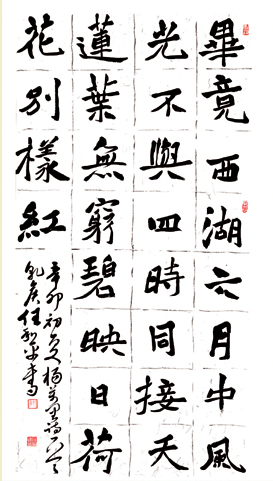 畢竟西湖六月中風
光不與四時同接天
蓮葉無窮碧映日荷
花別樣紅
辛卯初夏楊萬里詩
書